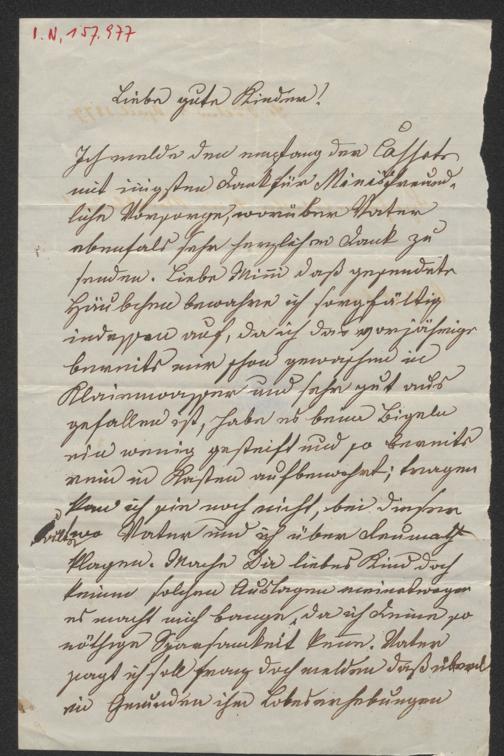 I.N. 157.977
Liebe gute Kinder!
Ich melde den empfang der Casset
mit innigsten Dank für Mimis freund-
liche Vorsorge, worüber Vater
ebenfals sehr herzlichen Dank zu
senden. Liebe Mimi daß gesendete
Häubchen bewahre ich sorgfältig
indessen auf, da ich das vorjährige
bereits mir schon gewaschen in
und sehr gut aus
gefallen ist, habe es beim Bigeln
ein wenig gesteift und so bereits
rein in Kasten aufbewahrt; tragen
kan ich sie noch nicht, bei dieser
wo Vater und ich über
klagen. Mache Dir liebes Kind doch
keine solchen Auslagen meinetwegen
es macht mich bange, da ich Deine so
nöthige Sparsamkeit kene. Vater
sagt ich soll Franz doch melden daß überal
in Gmunden ihm Lobeserhebungen